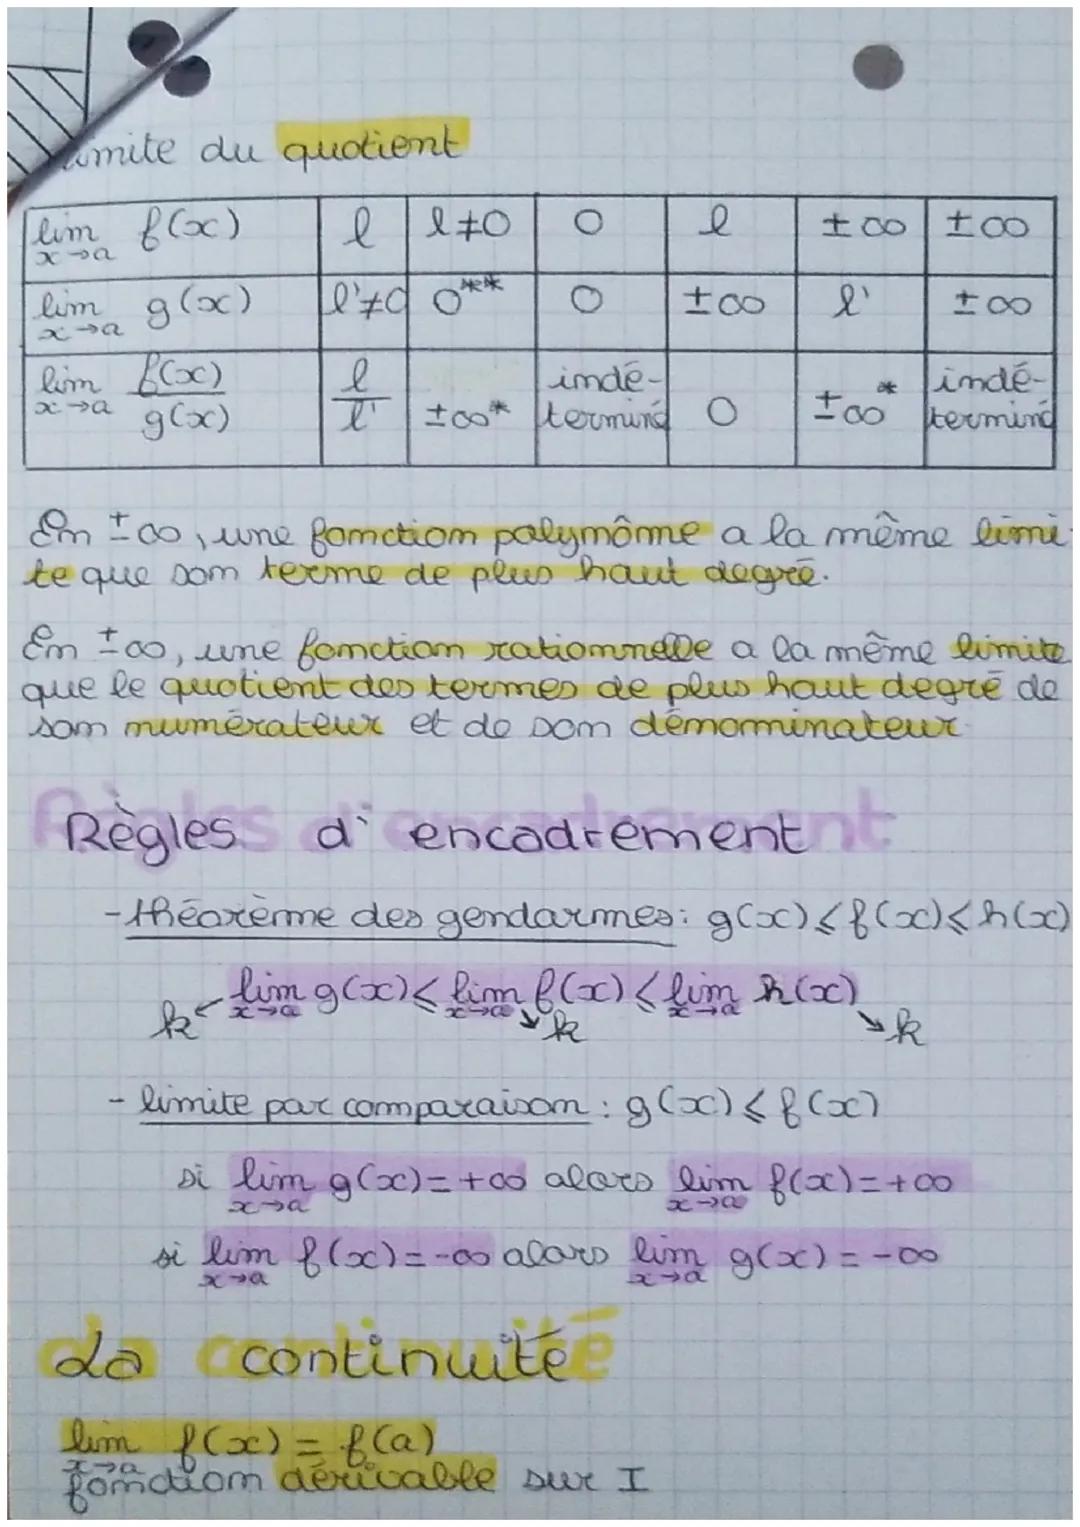 limite du quotient
lim x→a f(x) | l | l≠0 | 0 | l | ±∞ | ±∞
lim x→a g(x) | l'≠0 | 0** | 0 | ±∞ | l' | ±∞
lim x→a f(x)/g(x) | l/l' | ±∞* | indé-terminé | 0 | ±∞* | indé-terminé
En ±∞, une fonction polymôme a la même limi-
te que son terme de plus haut degré.
En ±∞, une fonction rationnelle a la même limite
que le quotient des termes de plus haut degré de
son numérateur et de son dénominateur.
Règles d'encadrement
- théorème des gendarmes : g(x) ⩽ f(x) ⩽ h(x)
lim x→a g(x) ⩽ lim x→a f(x) ⩽ lim x→a h(x)
k k k
- limite par comparaison : g(x) ⩽ f(x)
si lim x→a g(x) = +∞ alors lim x→a f(x) = +∞
si lim x→a f(x) = -∞ alors lim x→a g(x) = -∞
La continuité
lim x→a f(x) = f(a)
fonction dérivable sur I